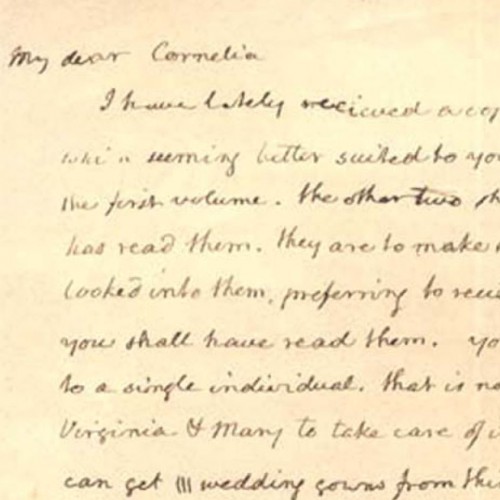 My dear Cornelia
I have lately recieved a cop
which seeming better suited to you
the first volume. the other two sh
has read them. they are to make
looked into them, preferring to rec
you shall have read them. yo
to a single individual. that is no
Virginia & Mary to take care of
can get 3 wedding gowns from the